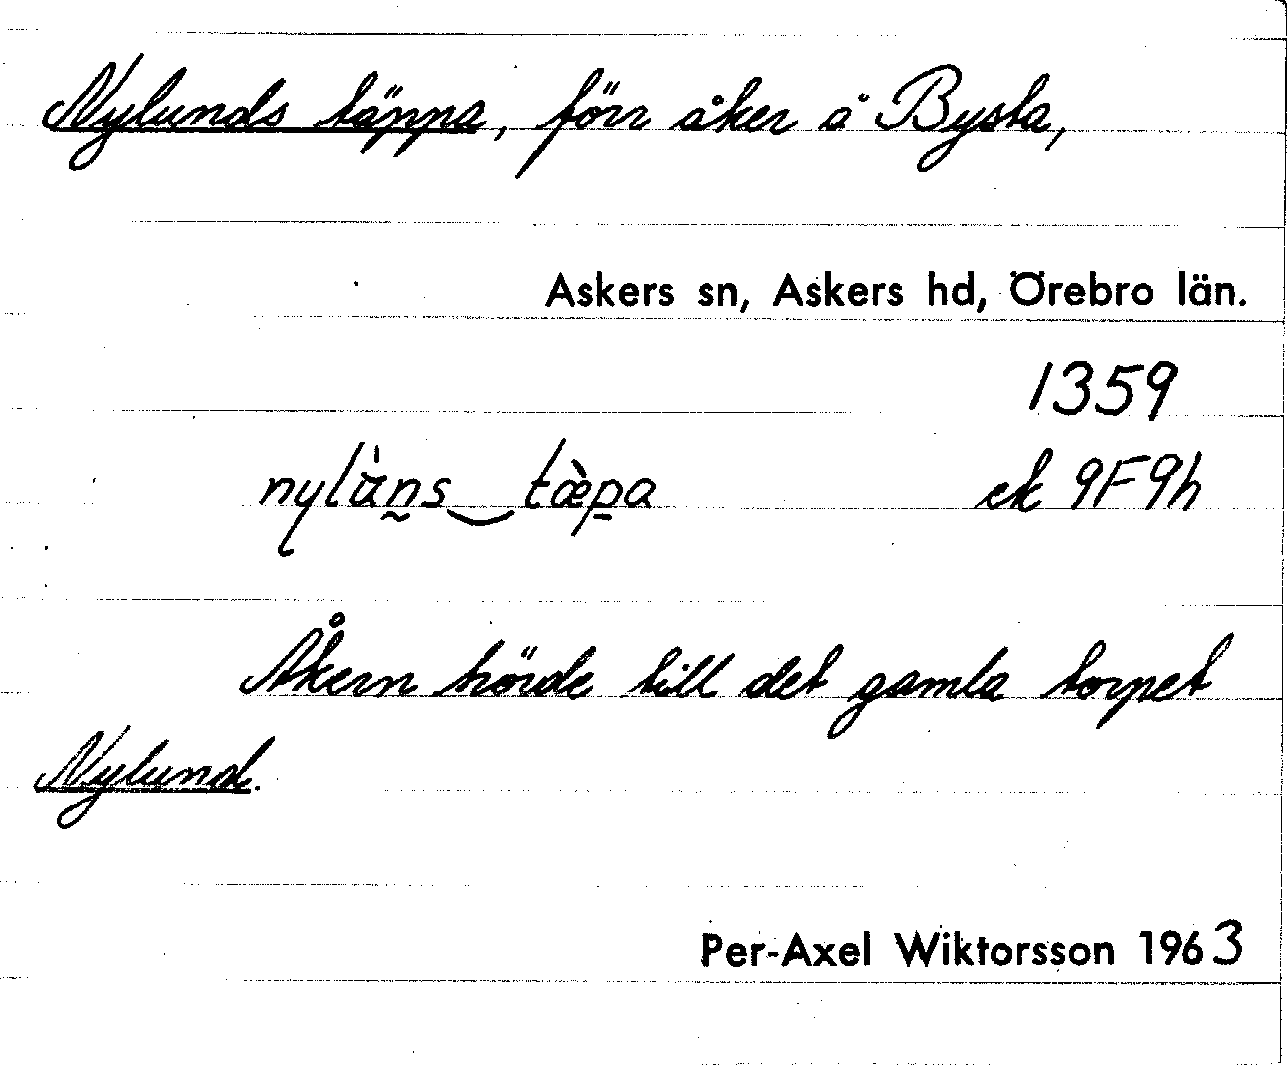 Nylunds täppa, förr åker å Bysta,
Askers sn, Askers hd, Örebro län.
1359
nylùn̰s‿tæ̀p̱a ek 9F9h
Åkern hörde till det gamla torpet
Nylund.
Per-Axel Wiktorsson 1963